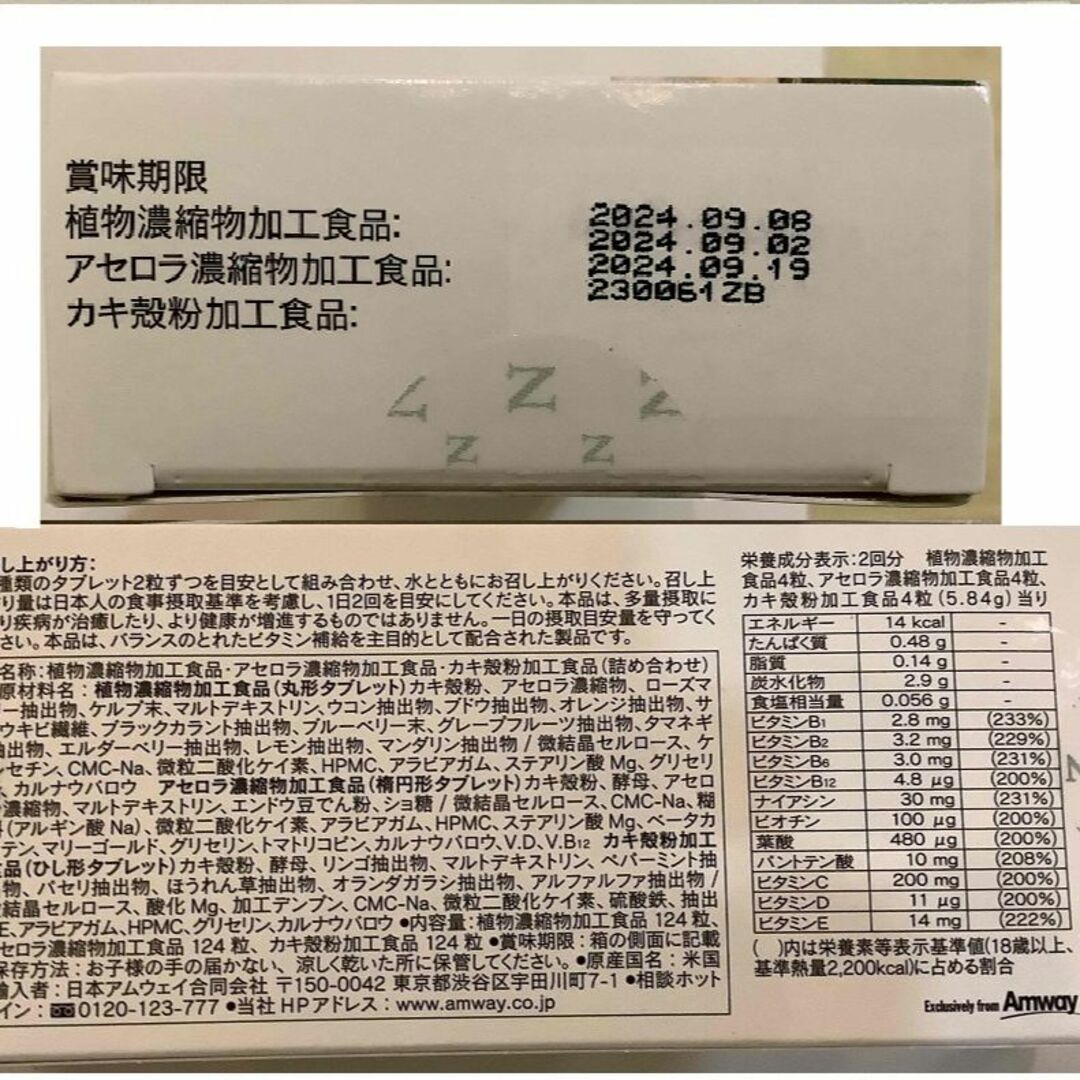 賞味期限
植物濃縮物加工食品:
アセロラ濃縮物加工食品:
カキ殻粉加工食品:
2024.09.08
2024.09.02
2024.09.19
230061ZB
Z Z Z
Z Z
し上がり方:
種類のタブレット2粒ずつを目安として組み合わせ、水とともにお召し上がりください。召し上
り量は日本人の食事摂取基準を考慮し、1日2回を目安にしてください。本品は、多量摂取に
り疾病が治癒したり、より健康が増進するものではありません。一日の摂取目安量を守ってく
さい。本品は、バランスのとれたビタミン補給を主目的として配合された製品です。
名称:植物濃縮物加工食品・アセロラ濃縮物加工食品・カキ殻粉加工食品(詰め合わせ)
原材料名:植物濃縮物加工食品(丸形タブレット)カキ殻粉、アセロラ濃縮物、ローズマ
リー抽出物、ケルプ末、マルトデキストリン、ウコン抽出物、ブドウ抽出物、オレンジ抽出物、サ
ウキビ繊維、ブラックカラント抽出物、ブルーベリー末、グレープフルーツ抽出物、タマネギ
抽出物、エルダーベリー抽出物、レモン抽出物、マンダリン抽出物/微結晶セルロース、ケ
ルセチン、CMC-Na、微粒二酸化ケイ素、HPMC、アラビアガム、ステアリン酸Mg、グリセリ
、カルナウバロウ アセロラ濃縮物加工食品(楕円形タブレット)カキ殻粉、酵母、アセロ
濃縮物、マルトデキストリン、エンドウ豆でん粉、ショ糖/微結晶セルロース、CMC-Na、糊
(アルギン酸Na)、微粒二酸化ケイ素、アラビアガム、HPMC、ステアリン酸Mg、ベータカ
テン、マリーゴールド、グリセリン、トマトリコピン、カルナウバロウ、V.D、V.B12 カキ殻粉加工
品(ひし形タブレット)カキ殻粉、酵母、リンゴ抽出物、マルトデキストリン、ペパーミント抽
物、パセリ抽出物、ほうれん草抽出物、オランダガラシ抽出物、アルファルファ抽出物/
結晶セルロース、酸化Mg、加工デンプン、CMC-Na、微粒二酸化ケイ素、硫酸鉄、抽出
E、アラビアガム、HPMC、グリセリン、カルナウバロウ ●内容量:植物濃縮物加工食品 124粒、
セロラ濃縮物加工食品 124粒、カキ殻粉加工食品 124粒 ●賞味期限:箱の側面に記載
保存方法:お子様の手の届かない、涼しく乾いた所に保管してください。●原産国名:米国
輸入者:日本アムウェイ合同会社 〒150-0042 東京都渋谷区宇田川町7-1 ●相談ホット
イン:0120-123-777 ●当社HPアドレス:www.amway.co.jp
栄養成分表示:2回分 植物濃縮物加工
食品4粒、アセロラ濃縮物加工食品4粒、
カキ殻粉加工食品4粒(5.84g)当り
エネルギー 14 kcal -
たんぱく質 0.48 g -
脂質 0.14 g -
炭水化物 2.9 g -
食塩相当量 0.056 g -
ビタミンB1 2.8 mg (233%)
ビタミンB2 3.2 mg (229%)
ビタミンB6 3.0 mg (231%)
ビタミンB12 4.8 μg (200%)
ナイアシン 30 mg (231%)
ビオチン 100 μg (200%)
葉酸 480 μg (200%)
パントテン酸 10 mg (208%)
ビタミンC 200 mg (200%)
ビタミンD 11 μg (200%)
ビタミンE 14 mg (222%)
( )内は栄養素等表示基準値(18歳以上、
基準熱量2,200kcal)に占める割合
Exclusively from Amway